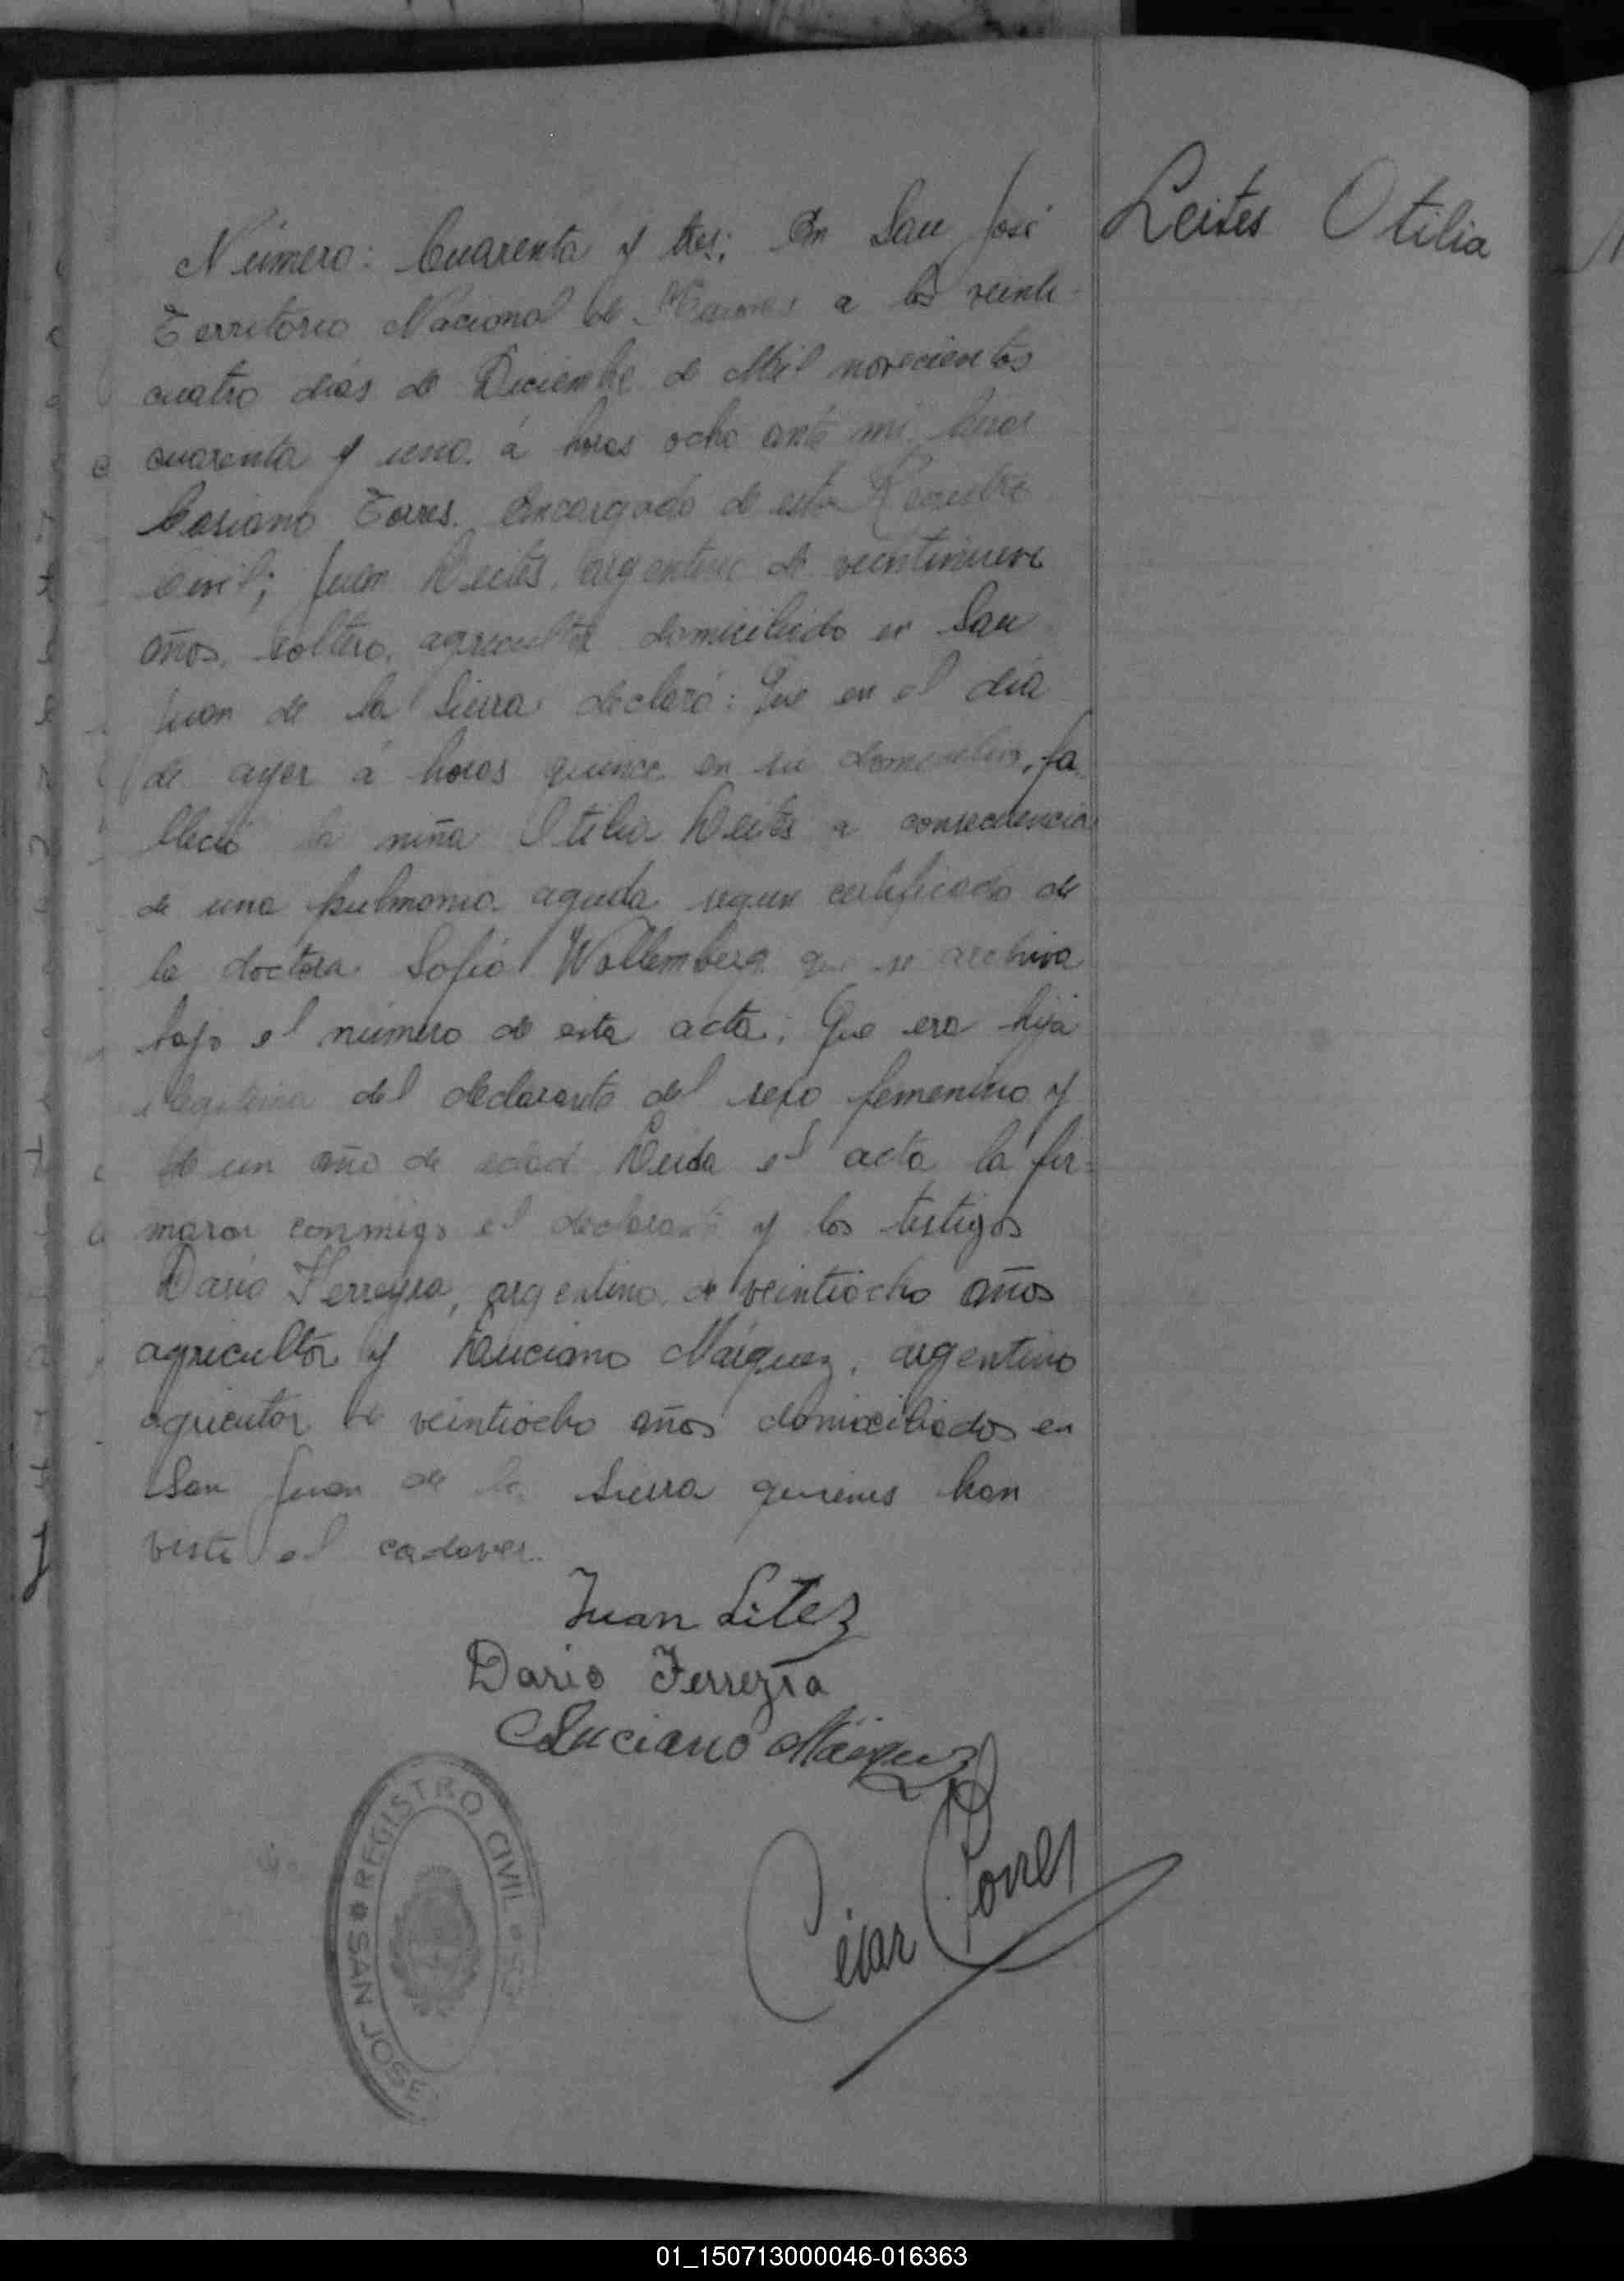 Leites Otilia
Número: Cuarenta y tres: En San José
Territorio Nacional de Misiones a los veinti-
cuatro días de Diciembre de Mil novecientos
cuarenta y uno. á horas ocho ante mi, César
Casiano Torres. Encargado de este Registro
Civil; Juan Leites, argentino de veintinueve
años, soltero, agricultor domiciliado en San
Juan de la Sierra declaró: Que en el día
de ayer á horas quince en su domicilio, fa-
lleció la niña Otilia Leites a consecuencia
de una pulmonia aguda segun certificado de
la doctora Sofia Wollemberg que se archiva
bajo el número de esta acta; Que era hija
ilegitima del declarante del sexo femenino y
de un año de edad. Leida el acta la fir-
maron conmigo el declarante y los testigos
Dario Ferreyra, argentino de veintiocho años
agricultor y Luciano Márquez, argentino
agricutor de veintiocho años domiciliados en
San Juan de la Sierra quienes han
visto el cadaver.
Juan Litez
Dario Ferreyra
Luciano Márquez
César C Torres
REGISTRO CIVIL
SAN JOSE
01_150713000046-016363